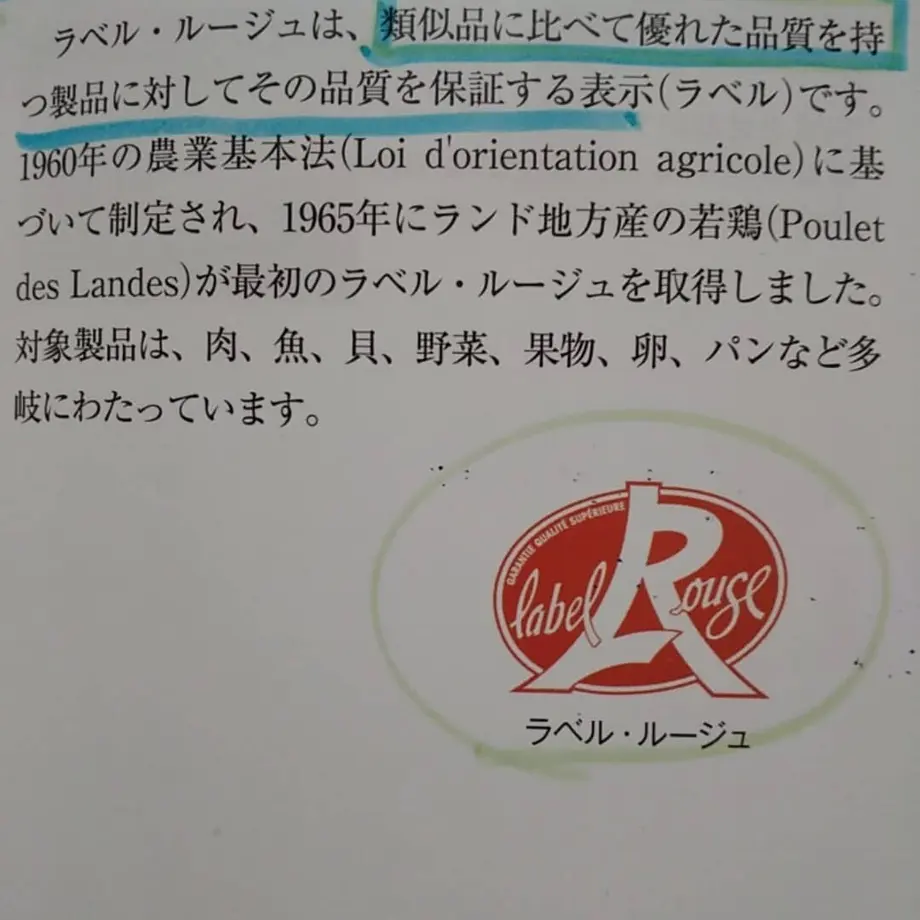 ラベル・ルージュは、類似品に比べて優れた品質を持
つ製品に対してその品質を保証する表示(ラベル)です。
1960年の農業基本法(Loi d'orientation agricole)に基
づいて制定され、1965年にランド地方産の若鶏(Poulet
des Landes)が最初のラベル・ルージュを取得しました。
対象製品は、肉、魚、貝、野菜、果物、卵、パンなど多
岐にわたっています。
GARANTIE QUALITÉ SUPÉRIEURE
label Rouge
ラベル・ルージュ